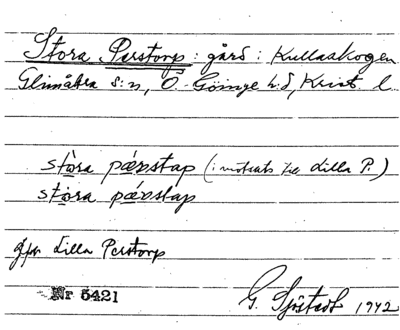 Stora Perstorp: gård: Kullaskogen
Glimåkra s:n, Ö. Göinge h:d, Krist. l
stòra pǽrstap (i motsats till Lilla P.)
stòra pǽrstap
jfr Lilla Perstorp
Nr 5421
G. Sjöstedt 1942